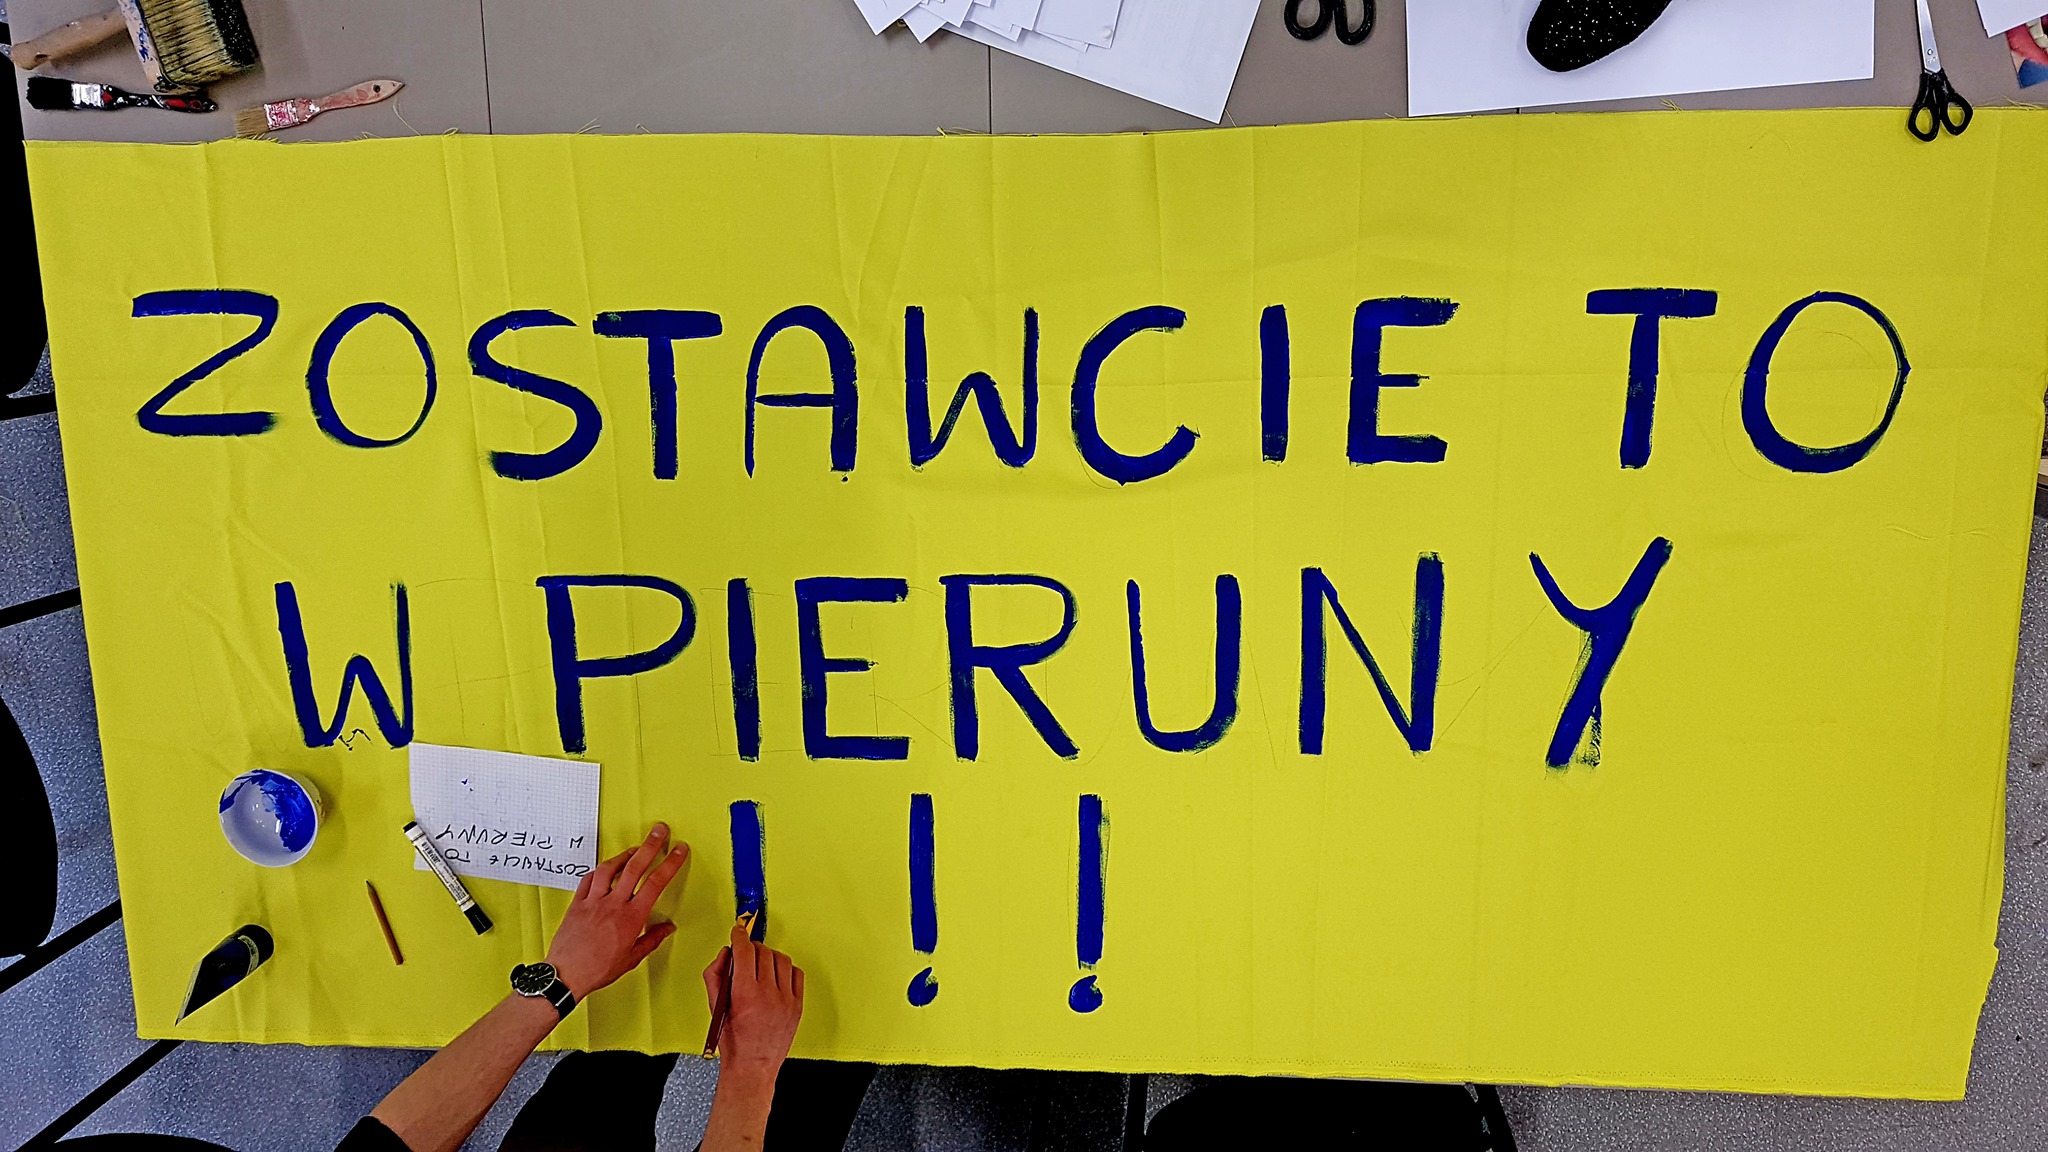 ZOSTAWCIE TO
W PIERUNY
!!!
ZOSTAWCIE TO
W PIERUNY